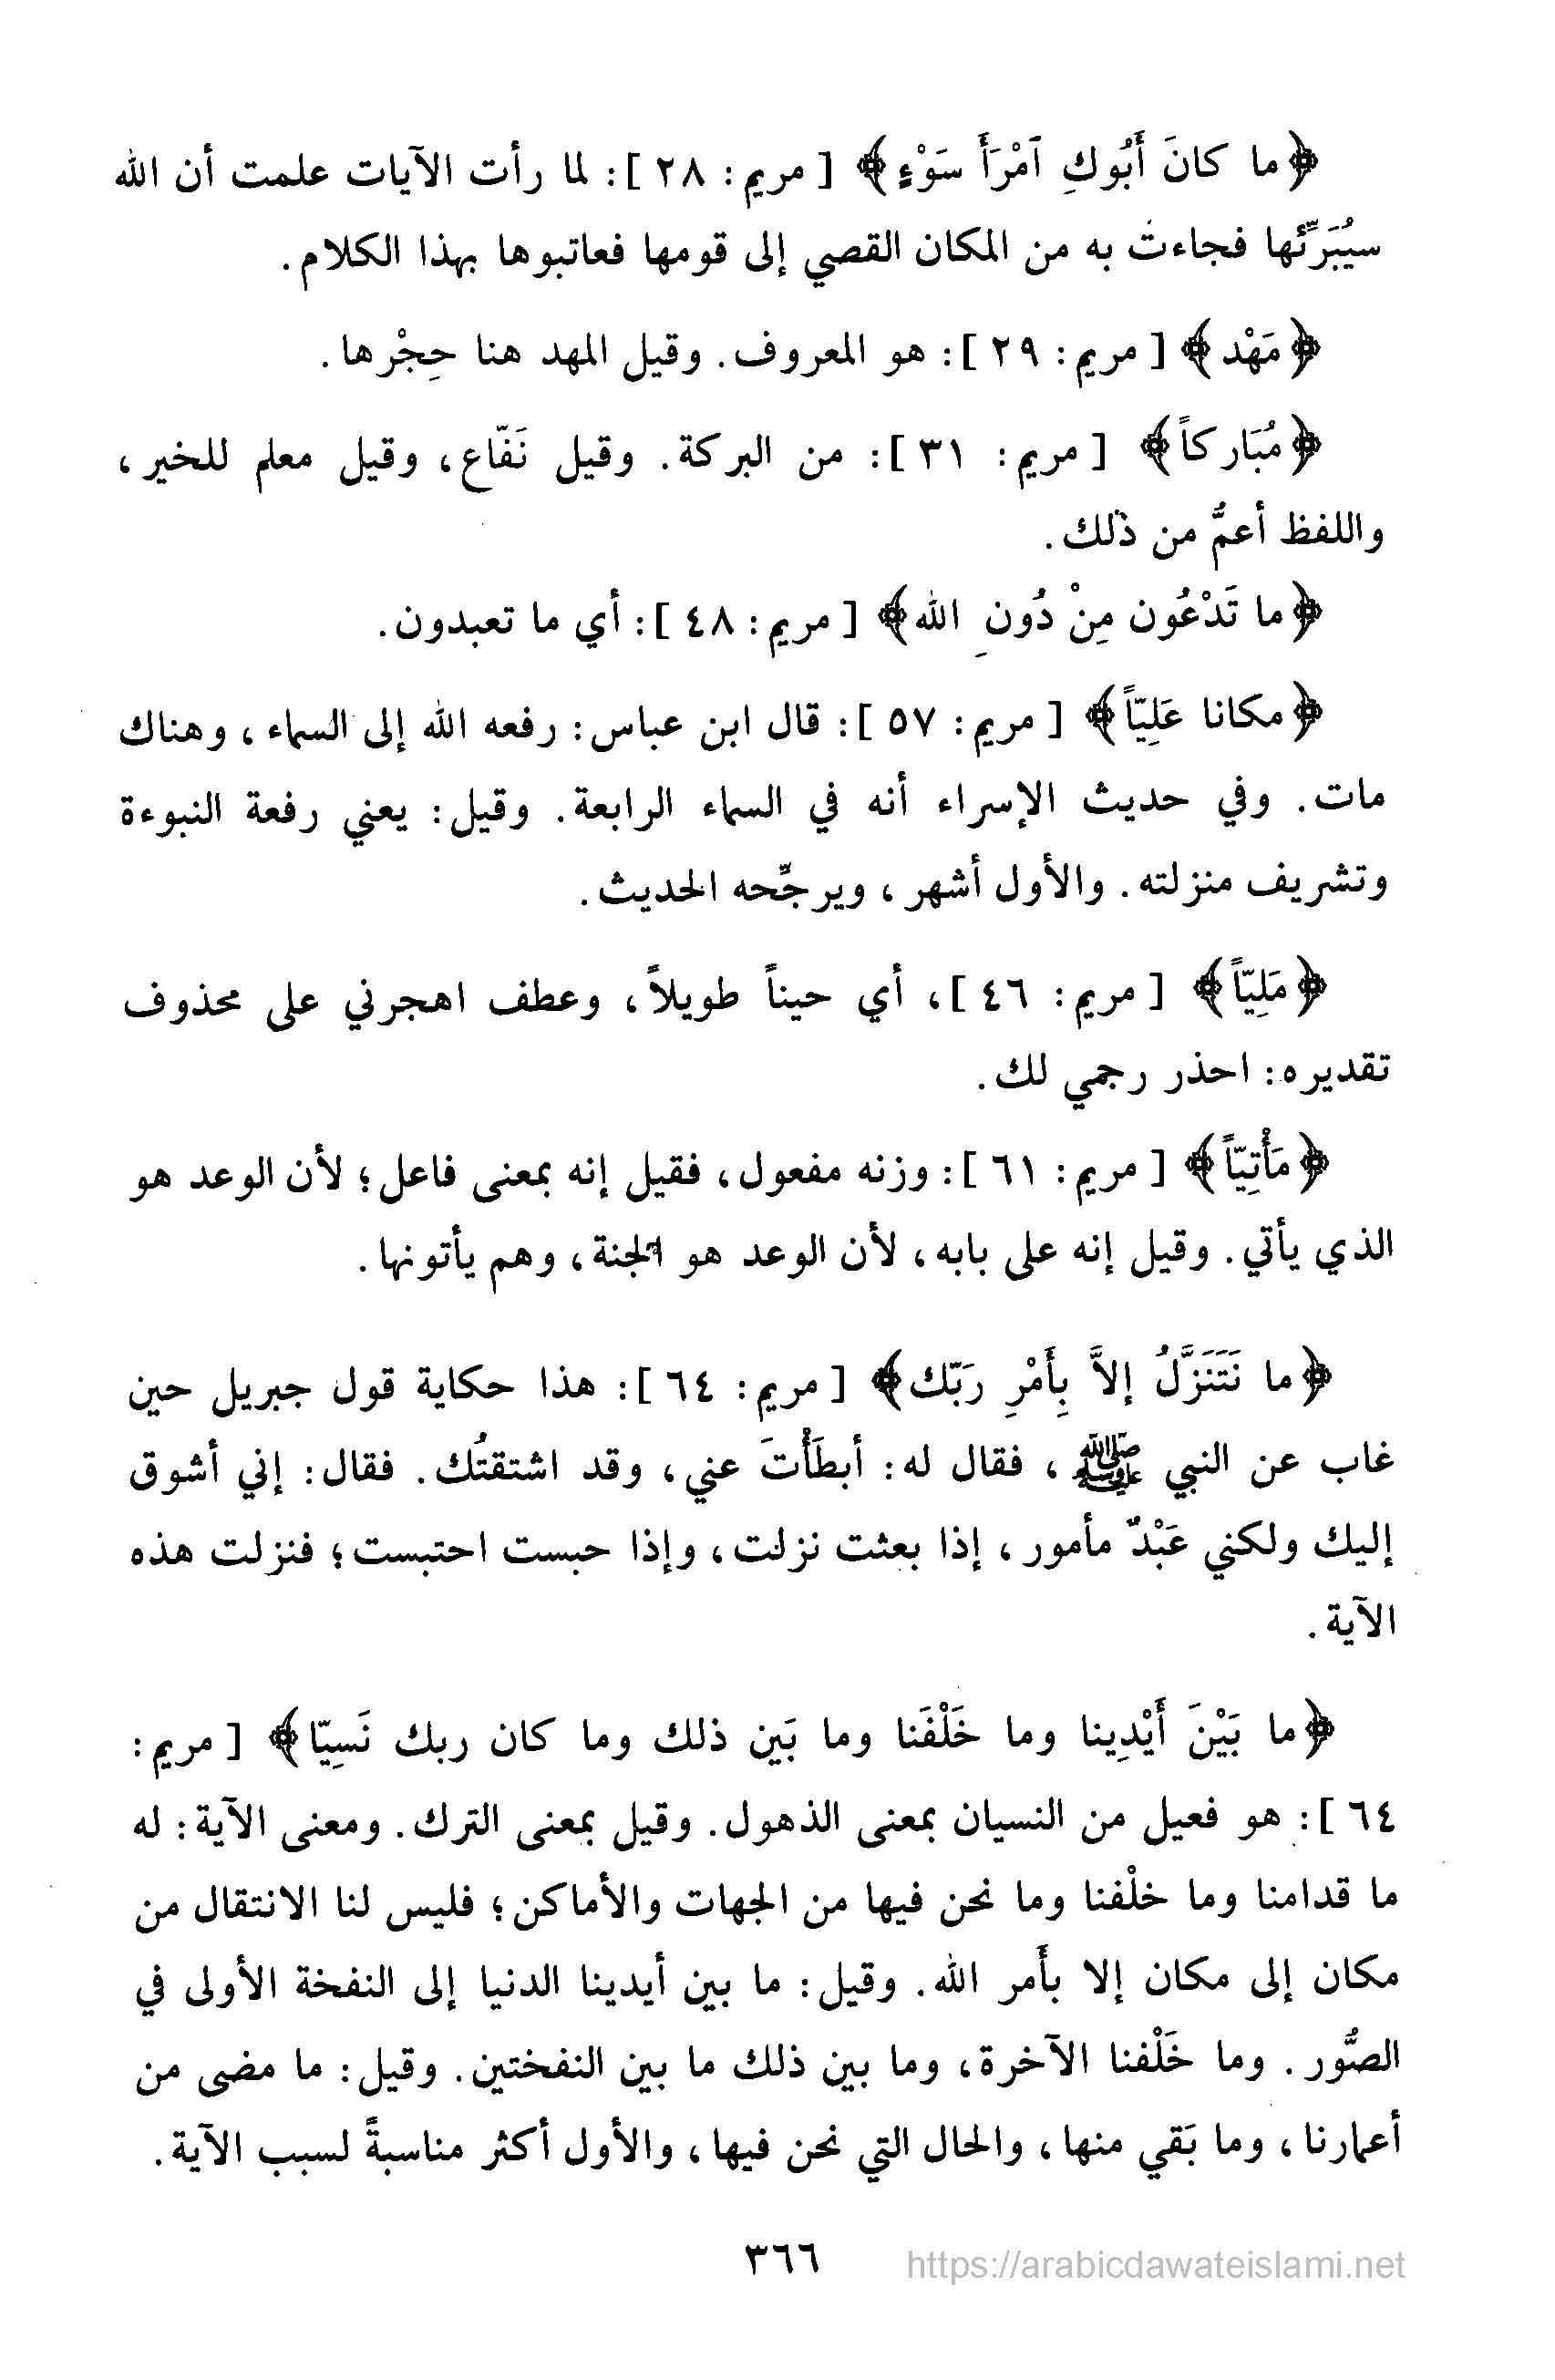 ﴿ما كانَ أَبُوكِ ٱمْرَأَ سَوْءٍ﴾ [ مريم: ٢٨ ]: لما رأت الآيات علمت أن الله
سيُبَرِّئها فجاءت به من المكان القصي إلى قومها فعاتبوها بهذا الكلام.
﴿مَهْد﴾ [ مريم: ٢٩ ]: هو المعروف. وقيل المهد هنا حِجْرها.
﴿مُبَاركاً﴾ [ مريم: ٣١ ]: من البركة. وقيل نَفّاع، وقيل معلم للخير،
واللفظ أعمُّ من ذلك.
﴿ما تَدْعُون مِنْ دُونِ الله﴾ [ مريم: ٤٨ ]: أي ما تعبدون.
﴿مكانا عَلِيّاً﴾ [ مريم: ٥٧ ]: قال ابن عباس: رفعه الله إلى السماء، وهناك
مات. وفي حديث الإسراء أنه في السماء الرابعة. وقيل: يعني رفعة النبوءة
وتشريف منزلته. والأول أشهر، ويرجِّحه الحديث.
﴿مَلِيّاً﴾ [ مريم: ٤٦ ]، أي حيناً طويلاً، وعطف اهجرني على محذوف
تقديره: احذر رجمي لك.
﴿مَأْتِيّاً﴾ [ مريم: ٦١ ]: وزنه مفعول، فقيل إنه بمعنى فاعل؛ لأن الوعد هو
الذي يأتي. وقيل إنه على بابه، لأن الوعد هو الجنة، وهم يأتونها.
﴿ما نَتَنَزَّلُ إلاَّ بِأَمْرِ رَبّك﴾ [ مريم: ٦٤ ]: هذا حكاية قول جبريل حين
غاب عن النبي ﷺ، فقال له: أبطَأْتَ عني، وقد اشتقتُك. فقال: إني أشوق
إليك ولكني عَبْدٌ مأمور، إذا بعثت نزلت، وإذا حبست احتبست؛ فنزلت هذه
الآية.
﴿ما بَيْنَ أَيْدِينا وما خَلْفَنا وما بَين ذلك وما كان ربك نَسِيّا﴾ [ مريم:
٦٤ ]: هو فعيل من النسيان بمعنى الذهول. وقيل بمعنى الترك. ومعنى الآية: له
ما قدامنا وما خلْفنا وما نحن فيها من الجهات والأماكن؛ فليس لنا الانتقال من
مكان إلى مكان إلا بأَمر الله. وقيل: ما بين أيدينا الدنيا إلى النفخة الأولى في
الصُّور. وما خَلْفنا الآخرة، وما بين ذلك ما بين النفختين. وقيل: ما مضى من
أعمارنا، وما بَقي منها، والحال التي نحن فيها، والأول أكثر مناسبةً لسبب الآية.
٣٦٦
https://arabicdawateislami.net